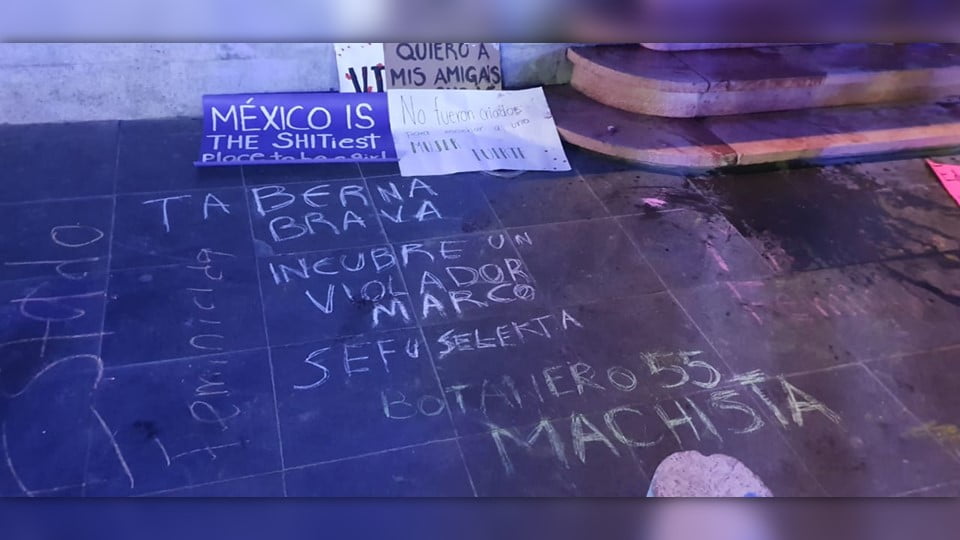 QUIERO A
MIS AMIGA'S
MÉXICO IS
THE SHITiest
Place to be a girl
No fueron criados
para a una
MUJER FUERTE
TA BERNA
BRAVA
INCUBRE UN
VIOLADOR
MARCO
SEFU SELEKTA
BOTANERO 55
MACHISTA
Estado
Feminicida